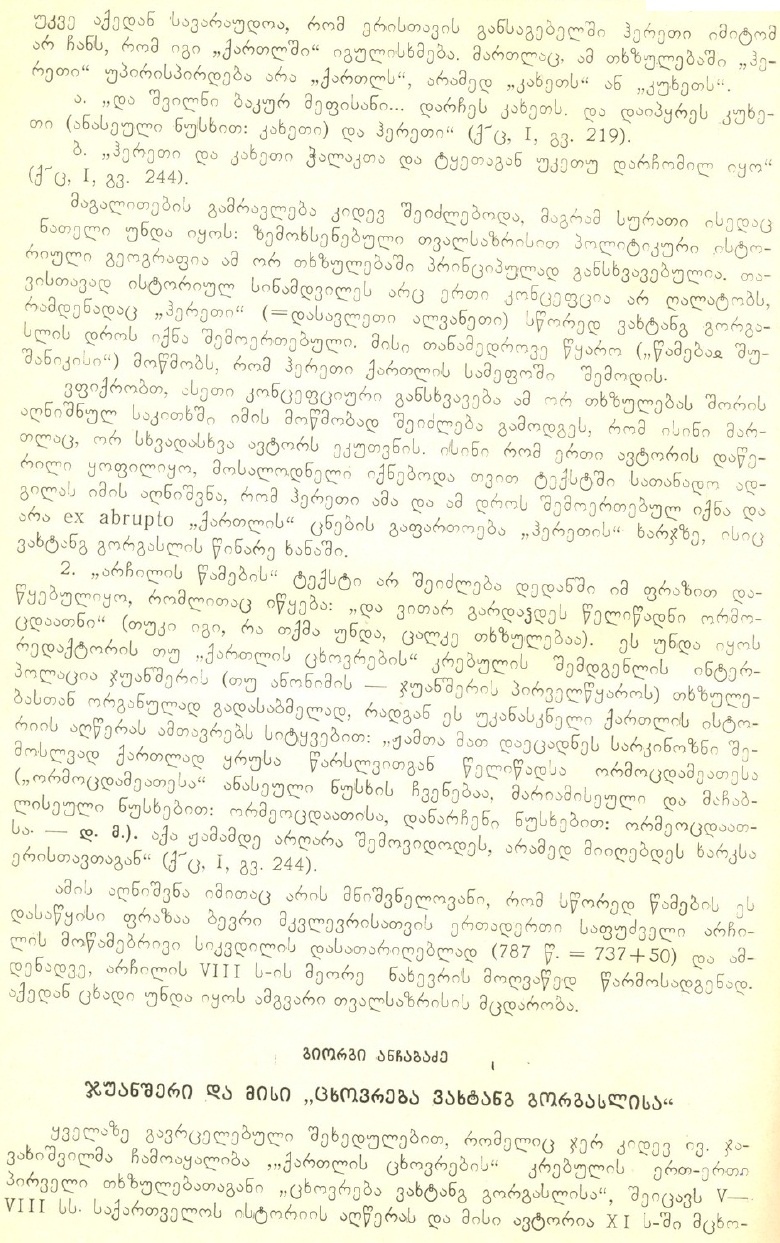 უკვე აქედან სავარაუდოა, რომ ერისთავის განსაგებელში ჰერეთი იმიტომ
არ ჩანს, რომ იგი „ქართლში“ იგულისხმება. მართლაც, ამ თხზულებაში „ჰე-
რეთი“ უპირისპირდება არა „ქართლს“, არამედ „კახეთს“ ან „კუხეთს“.
ა. „და შვილნი ბაკურ მეფისანი... დარჩეს კახეთს. და დაიპყრეს კუხე-
თი (ანასეული ნუსხით: კახეთი) და ჰერეთი“ (ქ˜ც, I, გვ. 219).
ბ. „ჰერეთი და კახეთი ჭალაკთა და ტყეთაგან უკეთუ დარჩომილ იყო“
(ქ˜ც, I, გვ. 244).
მაგალითების გამრავლება კიდევ შეიძლებოდა, მაგრამ სურათი ისედაც
ნათელი უნდა იყოს: ზემოხსენებული თვალსაზრისით პოლიტიკური ისტო-
რიული გეოგრაფია ამ ორ თხზულებაში პრინციპულად განსხვავებულია. თა-
ვისთავად ისტორიულ სინამდვილეს არც ერთი კონცეფცია არ ღალატობს,
რამდენადაც „ჰერეთი“ (=დასავლეთი ალვანეთი) სწორედ ვახტანგ გორგა-
სლის დროს იქნა შემოერთებული. მისი თანამედროვე წყარო („წამებაჲ შუ-
შანიკისი“) მოწმობს, რომ ჰერეთი ქართლის სამეფოში შემოდის.
ვფიქრობთ, ასეთი კონცეფციური განსხვავება ამ ორ თხზულებას შორის
აღნიშნულ საკითხში იმის მოწმობად შეიძლება გამოდგეს, რომ ისინი მარ-
თლაც, ორ სხვადასხვა ავტორს ეკუთვნის. ისინი რომ ერთი ავტორის დაწე-
რილი ყოფილიყო, მოსალოდნელი იქნებოდა თვით ტექსტში სათანადო ად-
გილას იმის აღნიშვნა, რომ ჰერეთი ამა და ამ დროს შემოერთებულ იქნა და
არა ex abrupto „ქართლის“ ცნების გაფართოება „ჰერეთის“ ხარჯზე, ისიც
ვახტანგ გორგასლის წინარე ხანაში.
2. „არჩილის წამების“ ტექსტი არ შეიძლება დედანში იმ ფრაზით და-
წყებულიყო, რომლითაც იწყება: „და ვითარ გარდაჴდეს წელიწადნი ორმო-
ცდაათნი“ (თუკი იგი, რა თქმა უნდა, ცალკე თხზულებაა). ეს უნდა იყოს
რედაქტორის თუ „ქართლის ცხოვრების“ კრებულის შემდგენლის ინტერ-
პოლაცია ჯუანშერის (თუ ანონიმის — ჯუანშერის პირველწყაროს) თხზულე-
ბასთან ორგანულად გადასაბმელად, რადგან ეს უკანასკნელი ქართლის ისტო-
რიის აღწერას ამთავრებს სიტყვებით: „ჟამთა მათ დაეცადნეს სარკინოზნი შე-
მოსლვად ქართლად ყრუსა წარსლვითგან წელიწადსა ორმოცდამეათესა
(„ორმოცდამეათესა“ ანასეული ნუსხის ჩვენებაა, მარიამისეული და მაჩაბ-
ლისეული ნუსხებით: ორმეოცდაათისა, დანარჩენი ნუსხებით: ორმეოცდაათ-
სა. — დ. მ.). აქა ჟამამდე არღარა შემოვიდოდეს, არამედ მიიღებდეს ხარკსა
ერისთავთაგან“ (ქ˜ც, I, გვ. 244).
ამის აღნიშვნა იმითაც არის მნიშვნელოვანი, რომ სწორედ წამების ეს
დასაწყისი ფრაზაა ბევრი მკვლევრისათვის ერთადერთი საფუძველი არჩი-
ლის მოწამებრივი სიკვდილის დასათარიღებლად (787 წ. = 737+50) და ამ-
დენადვე, არჩილის VIII ს-ის მეორე ნახევრის მოღვაწედ წარმოსადგენად.
აქედან ცხადი უნდა იყოს ამგვარი თვალსაზრისის მცდარობა.
გიორგი ანჩაბაძე
ჯუანშერი და მისი „ცხოვრება ვახტანგ გორგასლისა“
ყველაზე გავრცელებული შეხედულებით, რომელიც ჯერ კიდევ ივ. ჯა-
ვახიშვილმა ჩამოაყალიბა „ქართლის ცხოვრების“ კრებულის ერთ-ერთი
პირველი თხზულებათაგანი „ცხოვრება ვახტანგ გორგასლისა“, შეიცავს V—
VIII სს. საქართველოს ისტორიის აღწერას და მისი ავტორია XI ს-ში მცხო-